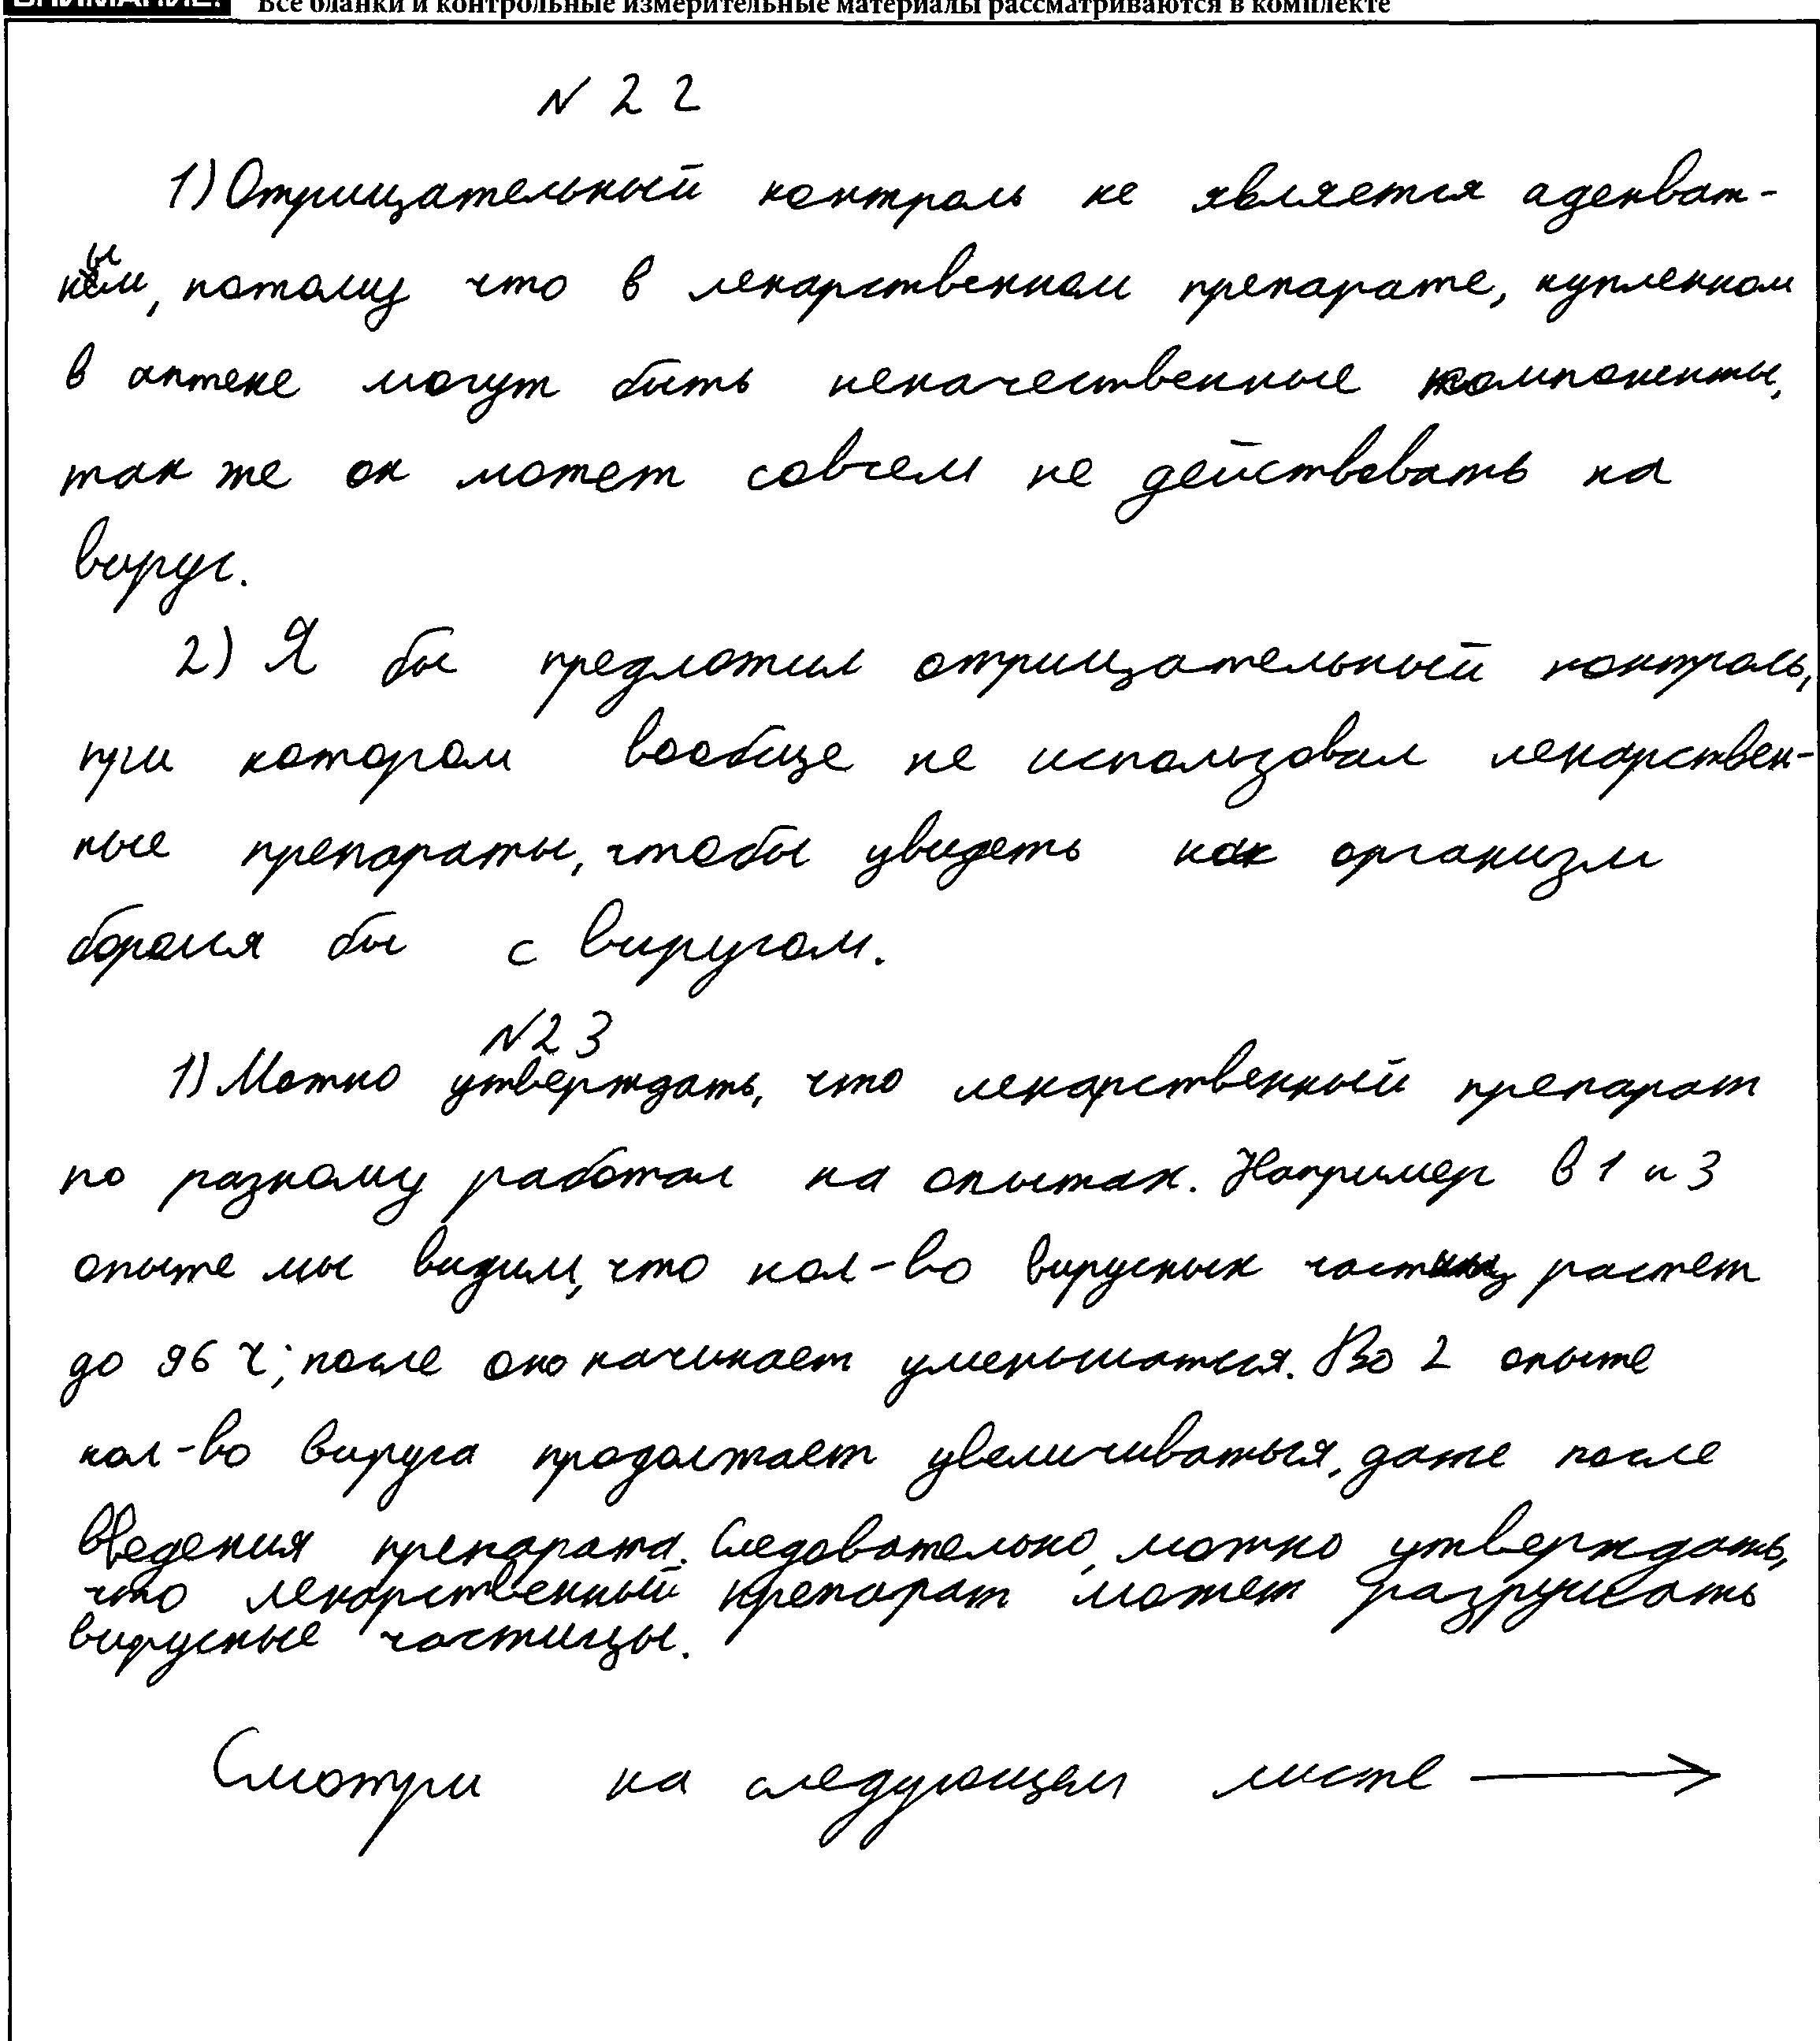 ВНИМАНИЕ! Все бланки и контрольные измерительные материалы рассматриваются в комплекте
N 22
1) Отрицательный контроль не является адекват-
ным, потому что в лекарственном препарате, купленном
в аптеке могут быть некачественные компоненты,
так же он может совсем не действовать на
вирус.
2) Я бы предложил отрицательный контроль,
при котором вообще не использовал лекарствен-
ные препараты, чтобы увидеть как организм
боролся бы с вирусом.
N23
1) Можно утверждать, что лекарственный препарат
по разному работал на опытах. Например в 1 и 3
опыте мы видим, что кол-во вирусных частиц растет
до 96 ч; после оно начинает уменьшаться. Во 2 опыте
кол-во вируса продолжает увеличиваться, даже после
введения препарата. Следовательно, можно утверждать,
что лекарственный препарат может разрушать
вирусные частицы.
Смотри на следующем листе →